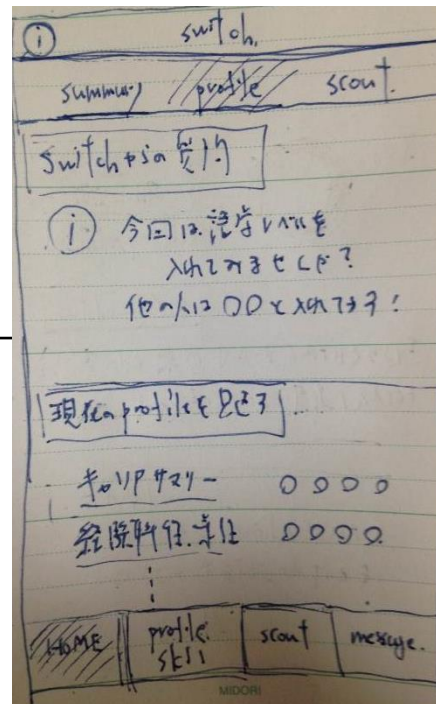 i switch.
summary profile scout.
switchからの質問
i 今回は語学レベルを
入れてみませんか?
他の人は〇〇と入れてます!
現在のprofileを見せる
キャリアサマリー 〇〇〇〇
経験職種.業種 〇〇〇〇
HOME profile scout message.
MIDORI